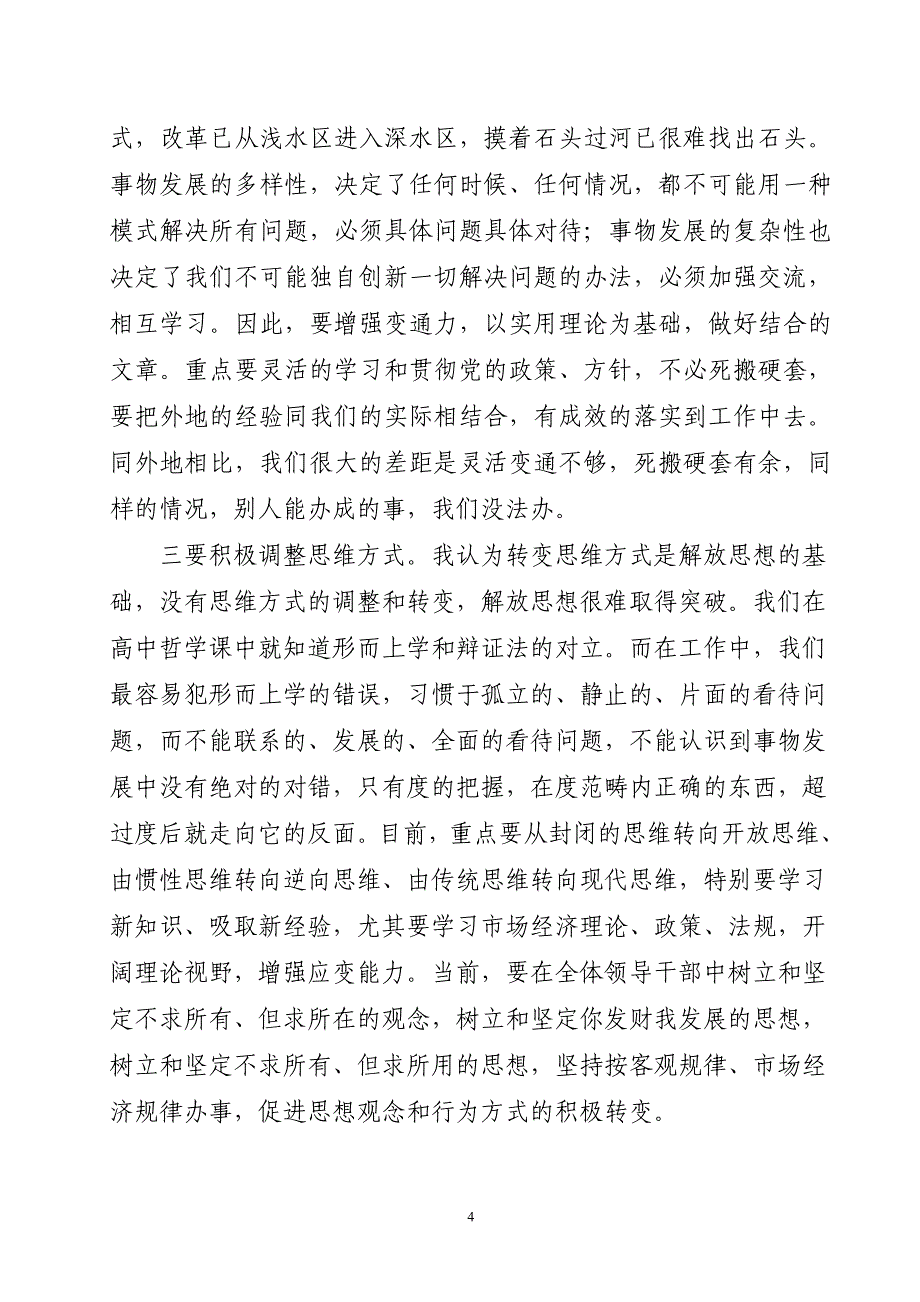 式，改革已从浅水区进入深水区，摸着石头过河已很难找出石头。
事物发展的多样性，决定了任何时候、任何情况，都不可能用一种
模式解决所有问题，必须具体问题具体对待；事物发展的复杂性也
决定了我们不可能独自创新一切解决问题的办法，必须加强交流，
相互学习。因此，要增强变通力，以实用理论为基础，做好结合的
文章。重点要灵活的学习和贯彻党的政策、方针，不必死搬硬套，
要把外地的经验同我们的实际相结合，有成效的落实到工作中去。
同外地相比，我们很大的差距是灵活变通不够，死搬硬套有余，同
样的情况，别人能办成的事，我们没法办。
三要积极调整思维方式。我认为转变思维方式是解放思想的基
础，没有思维方式的调整和转变，解放思想很难取得突破。我们在
高中哲学课中就知道形而上学和辩证法的对立。而在工作中，我们
最容易犯形而上学的错误，习惯于孤立的、静止的、片面的看待问
题，而不能联系的、发展的、全面的看待问题，不能认识到事物发
展中没有绝对的对错，只有度的把握，在度范畴内正确的东西，超
过度后就走向它的反面。目前，重点要从封闭的思维转向开放思维、
由惯性思维转向逆向思维、由传统思维转向现代思维，特别要学习
新知识、吸取新经验，尤其要学习市场经济理论、政策、法规，开
阔理论视野，增强应变能力。当前，要在全体领导干部中树立和坚
定不求所有、但求所在的观念，树立和坚定你发财我发展的思想，
树立和坚定不求所有、但求所用的思想，坚持按客观规律、市场经
济规律办事，促进思想观念和行为方式的积极转变。
4